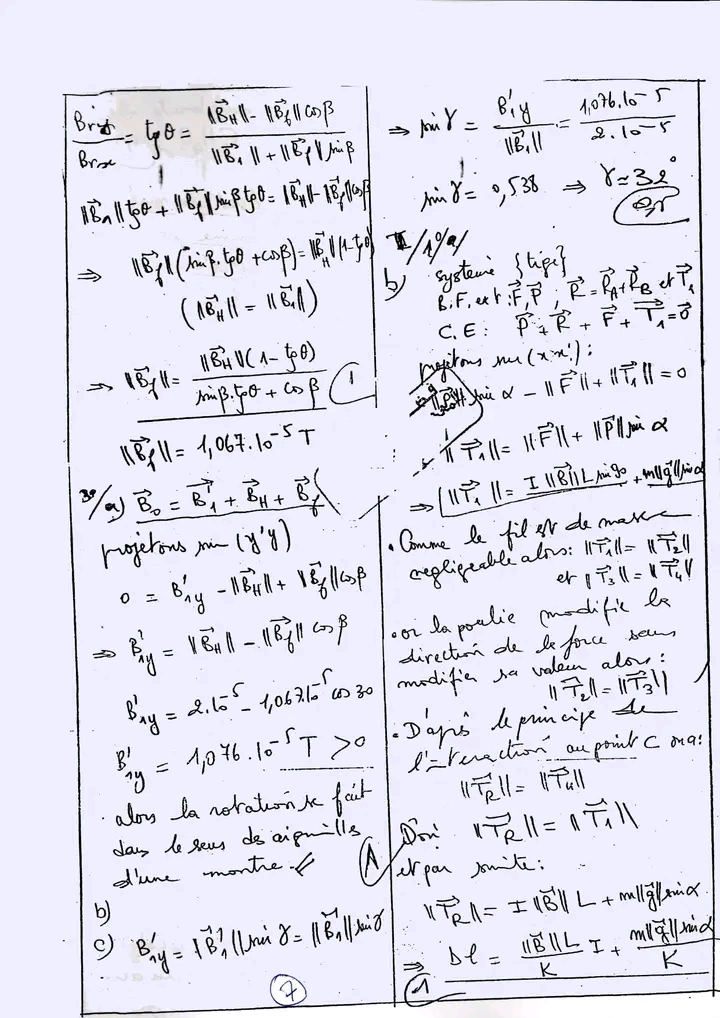 Bry/Brx = tgθ = (||B⃗H|| - ||B⃗f|| cosβ) / (||B⃗1|| + ||B⃗f|| sinβ)
||B⃗1|| tgθ + ||B⃗f|| sinβ tgθ = ||B⃗H|| - ||B⃗f|| cosβ
⇒ ||B⃗f|| (sinβ. tgθ + cosβ) = ||B⃗H|| (1 - tgθ)
(||B⃗H|| = ||B⃗1||)
⇒ ||B⃗f|| = ||B⃗H|| (1 - tgθ) / (sinβ. tgθ + cosβ) 1
||B⃗f|| = 1,067.10⁻⁵ T
3°/ a) B⃗0 = B⃗'1 + B⃗H + B⃗f
projetons sur (y'y)
0 = B'1y - ||B⃗H|| + ||B⃗f|| cosβ
⇒ B'1y = ||B⃗H|| - ||B⃗f|| cosβ
B'1y = 2.10⁻⁵ - 1,067.10⁻⁵ cos 30
B'1y = 1,076.10⁻⁵ T > 0
alors la rotation se fait
dans le sens des aiguilles
d'une montre. A
b)
c) B'1y = ||B⃗'1|| sin γ = ||B⃗1|| sin γ
⇒ sin γ = B'1y / ||B⃗1|| = 1,076.10⁻⁵ / 2.10⁻⁵
sin γ = 0,538 ⇒ γ ≃ 32°
0,5
II/ 1°/ a/
b) système {tige}
B.F. ext : F⃗, P⃗, R⃗ = R⃗A + R⃗B et T⃗1
C.E : P⃗ + R⃗ + F⃗ + T⃗1 = 0⃗
projetons sur (xx') :
||P⃗|| sin α - ||F⃗|| + ||T⃗1|| = 0
||T⃗1|| = ||F⃗|| + ||P⃗|| sin α
⇒ ||T⃗1|| = I ||B⃗|| L sin 90 + m||g⃗|| sin α
. Comme le fil est de masse
negligeable alors : ||T⃗1|| = ||T⃗2||
et ||T⃗3|| = ||T⃗4||
. or la poulie modifie la
direction de la force sans
modifier sa valeur alors :
||T⃗2|| = ||T⃗3||
. D'après le principe de
l'interaction au point C on a :
||T⃗R|| = ||T⃗4||
D'où ||T⃗R|| = ||T⃗1||
et par suite :
||T⃗R|| = I ||B⃗|| L + m||g⃗|| sin α
⇒ Δl = (||B⃗|| L / K) I + m||g⃗|| sin α / K
1
7